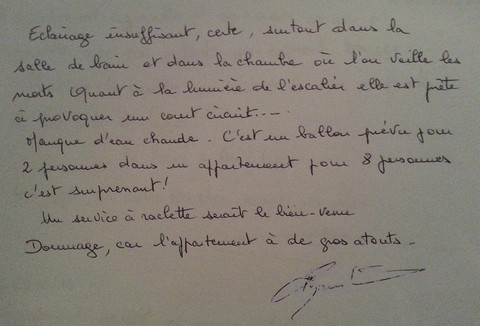 Eclairage insuffisant, certe, surtout dans la
salle de bain et dans la chambre où l'on veille les
morts (quant à la lumière de l'escalier elle est prête
à provoquer un court circuit....
Manque d'eau chaude. C'est un ballon prévu pour
2 personnes dans un appartement pour 8 personnes
c'est surprenant!
Un service à raclette serait le bien-venu
Dommage, car l'appartement à de gros atouts..